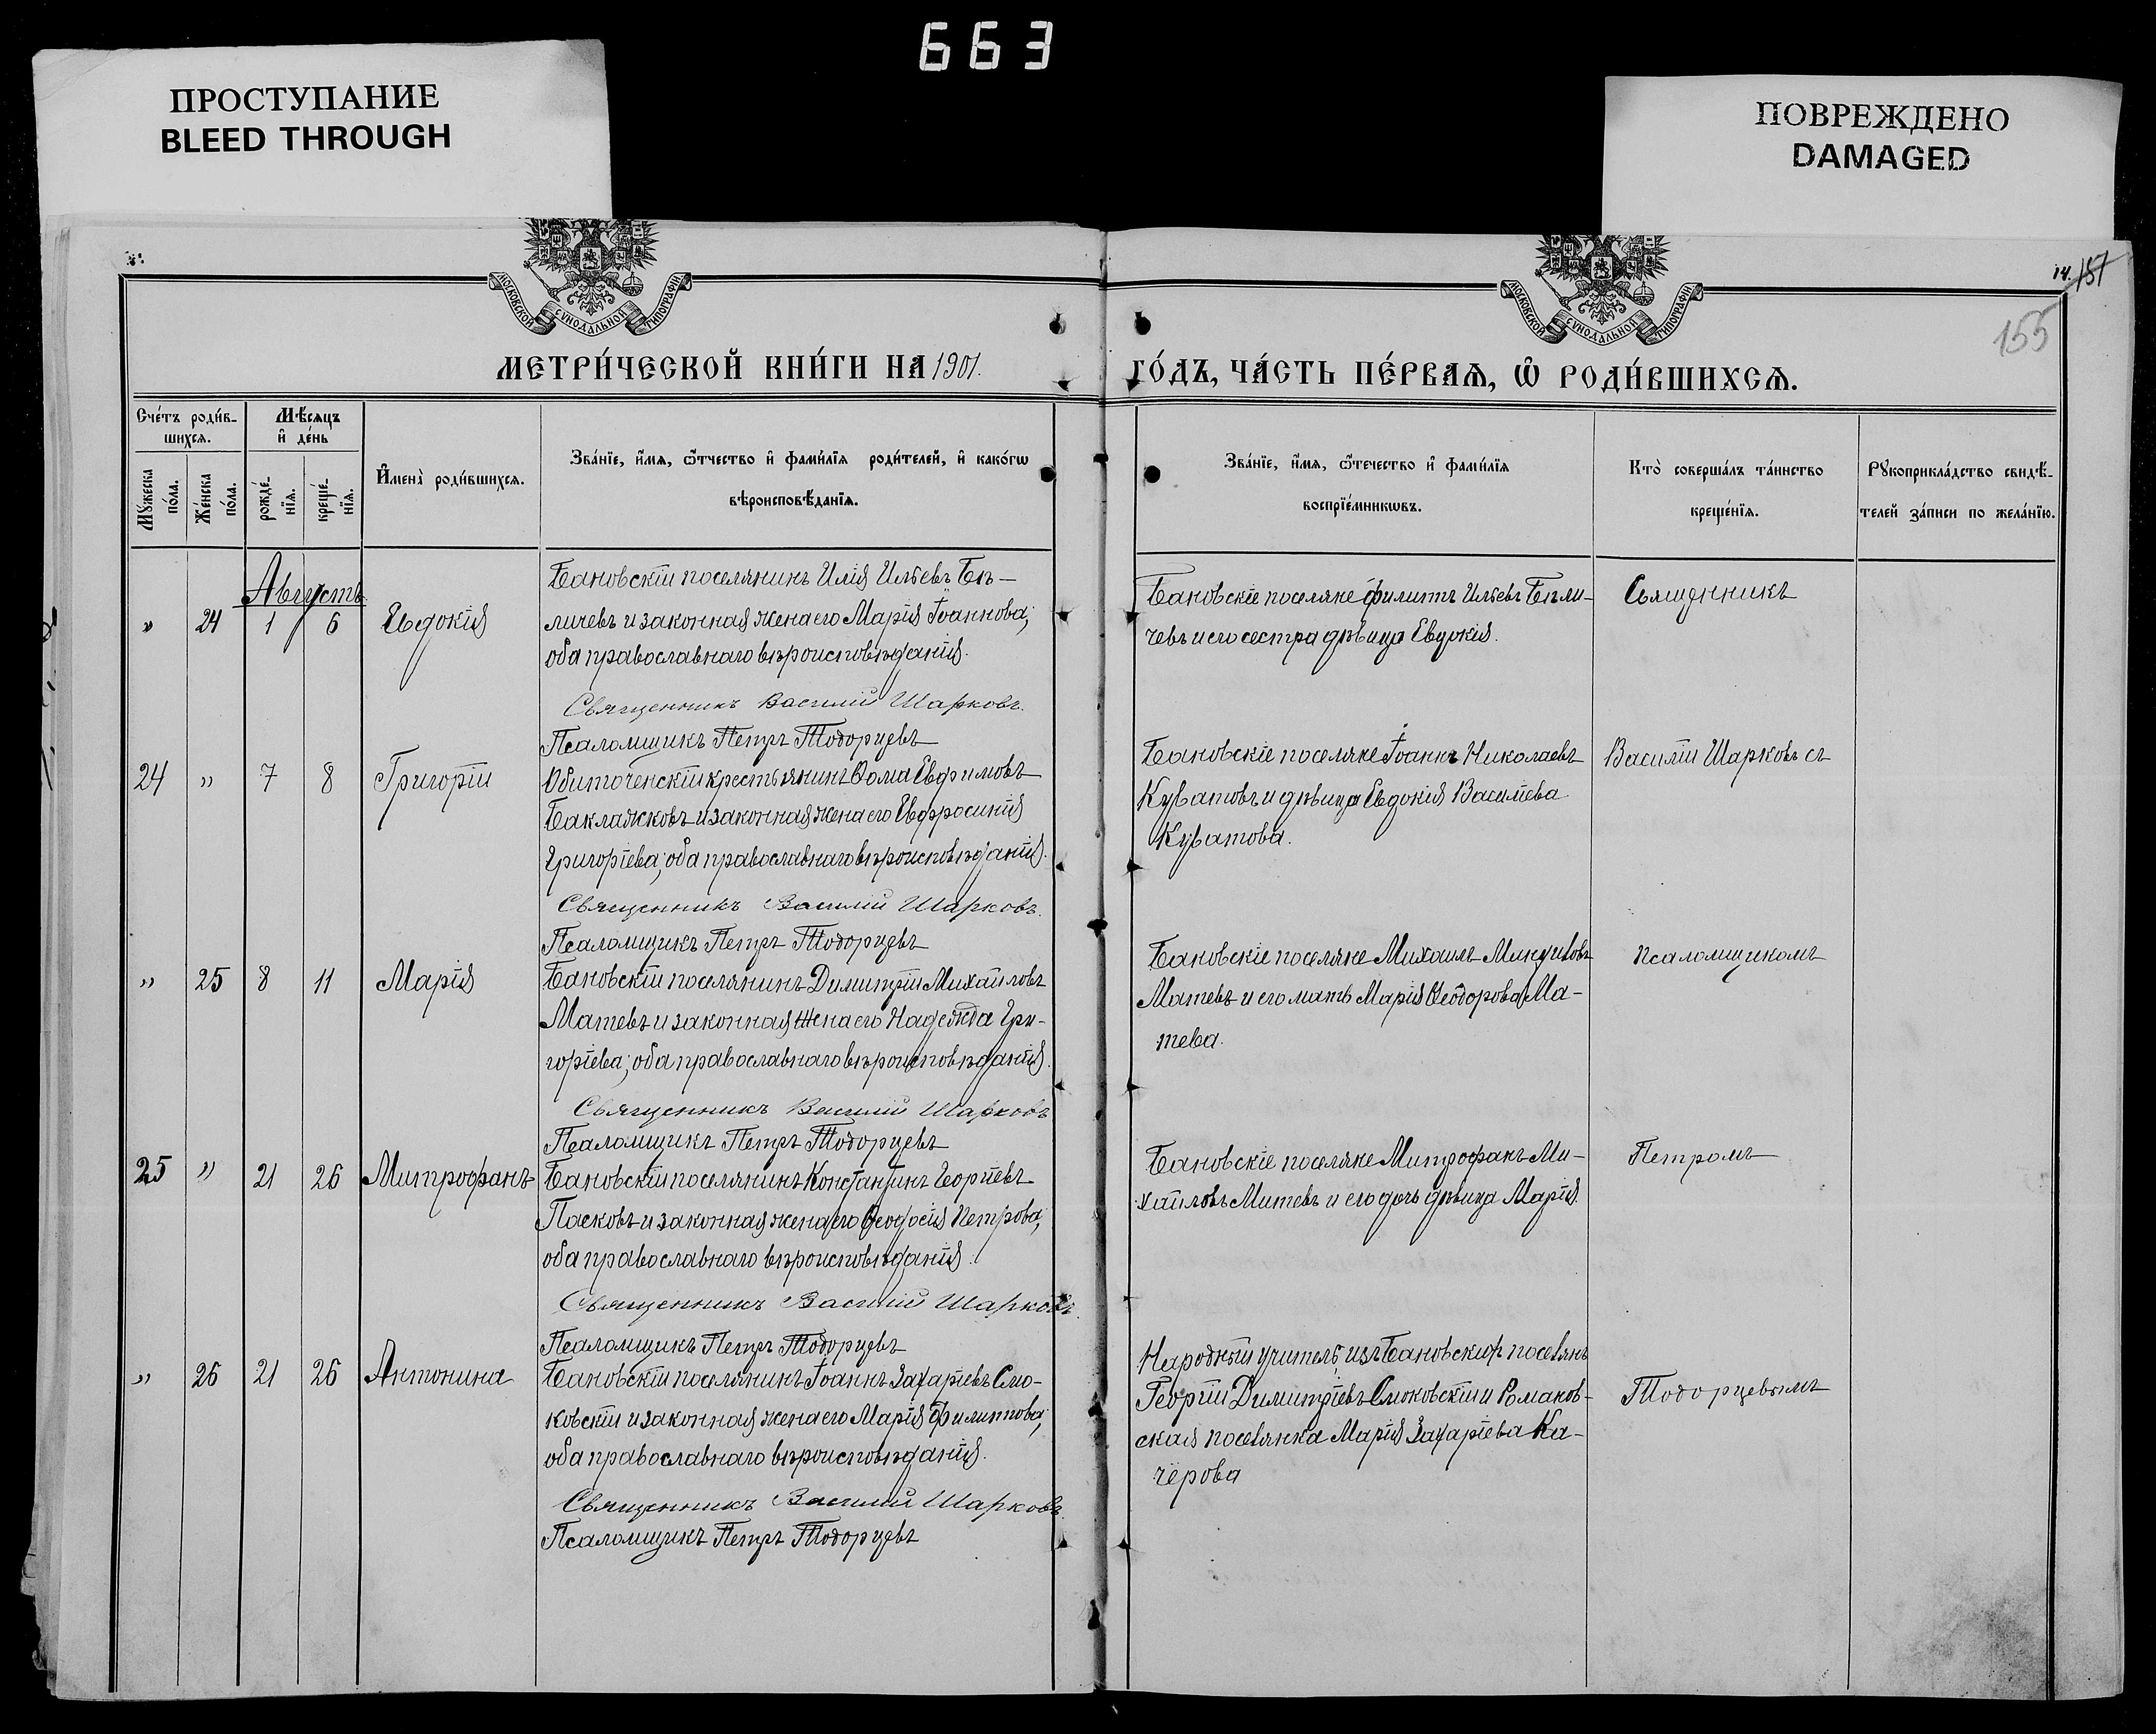 663
ПРОСТУПАНИЕ
BLEED THROUGH
ПОВРЕЖДЕНО
DAMAGED
МОСКОВСКОЙ СѴНОДАЛЬНОЙ ТИПОГРАФІИ
МОСКОВСКОЙ СѴНОДАЛЬНОЙ ТИПОГРАФІИ
14. 151
155
МЕТРИ́ЧЕСКОЙ КНИ́ГИ НА 1901.
ГО́ДЪ, ЧА́СТЬ ПЕ́РВАѦ, Ѽ РОДИ́ВШИХСѦ.
Сче́тъ роди́в-
шихсѧ.
Мꙋжеска по́ла.
Же́нска по́ла.
Мѣ́сѧцъ
и҆ де́нь
рожде́-
нїѧ.
креще́-
нїѧ.
И҆мена̀ роди́вшихсѧ.
Зва́нїе, и҆́мѧ, ѻ҆́тчество и҆ фами́лїѧ роди́телей, и҆ како́гѡ
вѣроисповѣ́данїѧ.
Зва́нїе, и҆́мѧ, ѻ҆́течество и҆ фами́лїѧ
воспрїе́мникѡвъ.
Кто̀ соверша́лъ та́инство
креще́нїѧ.
Рꙋкоприкла́дство свидѣ́-
телей за́писи по жела́нїю.
Августъ
" 24 1 6 Евдокія
Бановскій поселянинъ Илія Ильевъ Бѣ-
личевъ и законная жена его Марія Іоаннова;
оба православнаго вѣроисповѣданія.
Священникъ Василій Шарковъ.
Псаломщикъ Петръ Тодорцевъ
Бановскіе поселяне Филиппъ Ильевъ Бѣли-
чевъ и его сестра дѣвица Евдокія.
Священникъ
24 " 7 8 Григорій
Обиточенскій крестьянинъ Ѳома Евфимовъ
Баклажковъ и законная жена его Евфросинія
Григоріева; оба православнаго вѣроисповѣданія.
Священникъ Василій Шарковъ.
Псаломщикъ Петръ Тодорцевъ
Бановскіе поселяне Іоаннъ Николаевъ
Куватовъ и дѣвица Евдокія Василіева
Куватова.
Василій Шарковъ съ
" 25 8 11 Марія
Бановскій поселянинъ Димитрій Михайловъ
Матевъ и законная жена его Надежда Гри-
горіева; оба православнаго вѣроисповѣданія.
Священникъ Василій Шарковъ
Псаломщикъ Петръ Тодорцевъ
Бановскіе поселяне Михаилъ
Матевъ и его мать Марія Ѳеодорова Ма-
тева.
псаломщикомъ
25 " 21 26 Митрофанъ
Бановскій поселянинъ Константинъ Георгіевъ
Пасковъ и законная жена его Ѳеодосія Петрова;
оба православнаго вѣроисповѣданія.
Священникъ Василій Шарковъ.
Псаломщикъ Петръ Тодорцевъ
Бановскіе поселяне Митрофанъ Ми-
хайловъ Митевъ и его дочь дѣвица Марія.
Петромъ
" 26 21 26 Антонина
Бановскій поселянинъ Іоаннъ Захаріевъ Смо-
ковскій и законная жена его Марія Филиппова;
оба православнаго вѣроисповѣданія.
Священникъ Василій Шарковъ.
Псаломщикъ Петръ Тодорцевъ
Народный учитель изъ Бановскихъ поселянъ
Георгій Димитріевъ Смоковскій и Романов-
ская поселянка Марія Захаріева Ка-
чёрова
Тодорцевымъ